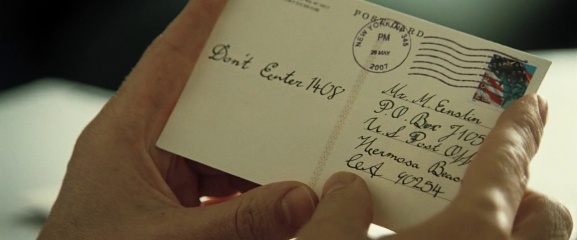 POSTCARD
NEW YORK, NY 345
PM
26 MAY
2007
Don't Eenter 1408
Mr. M. Enslin
P.O. Box 7105
U S Post Off
Hermosa Beac
CA 90254